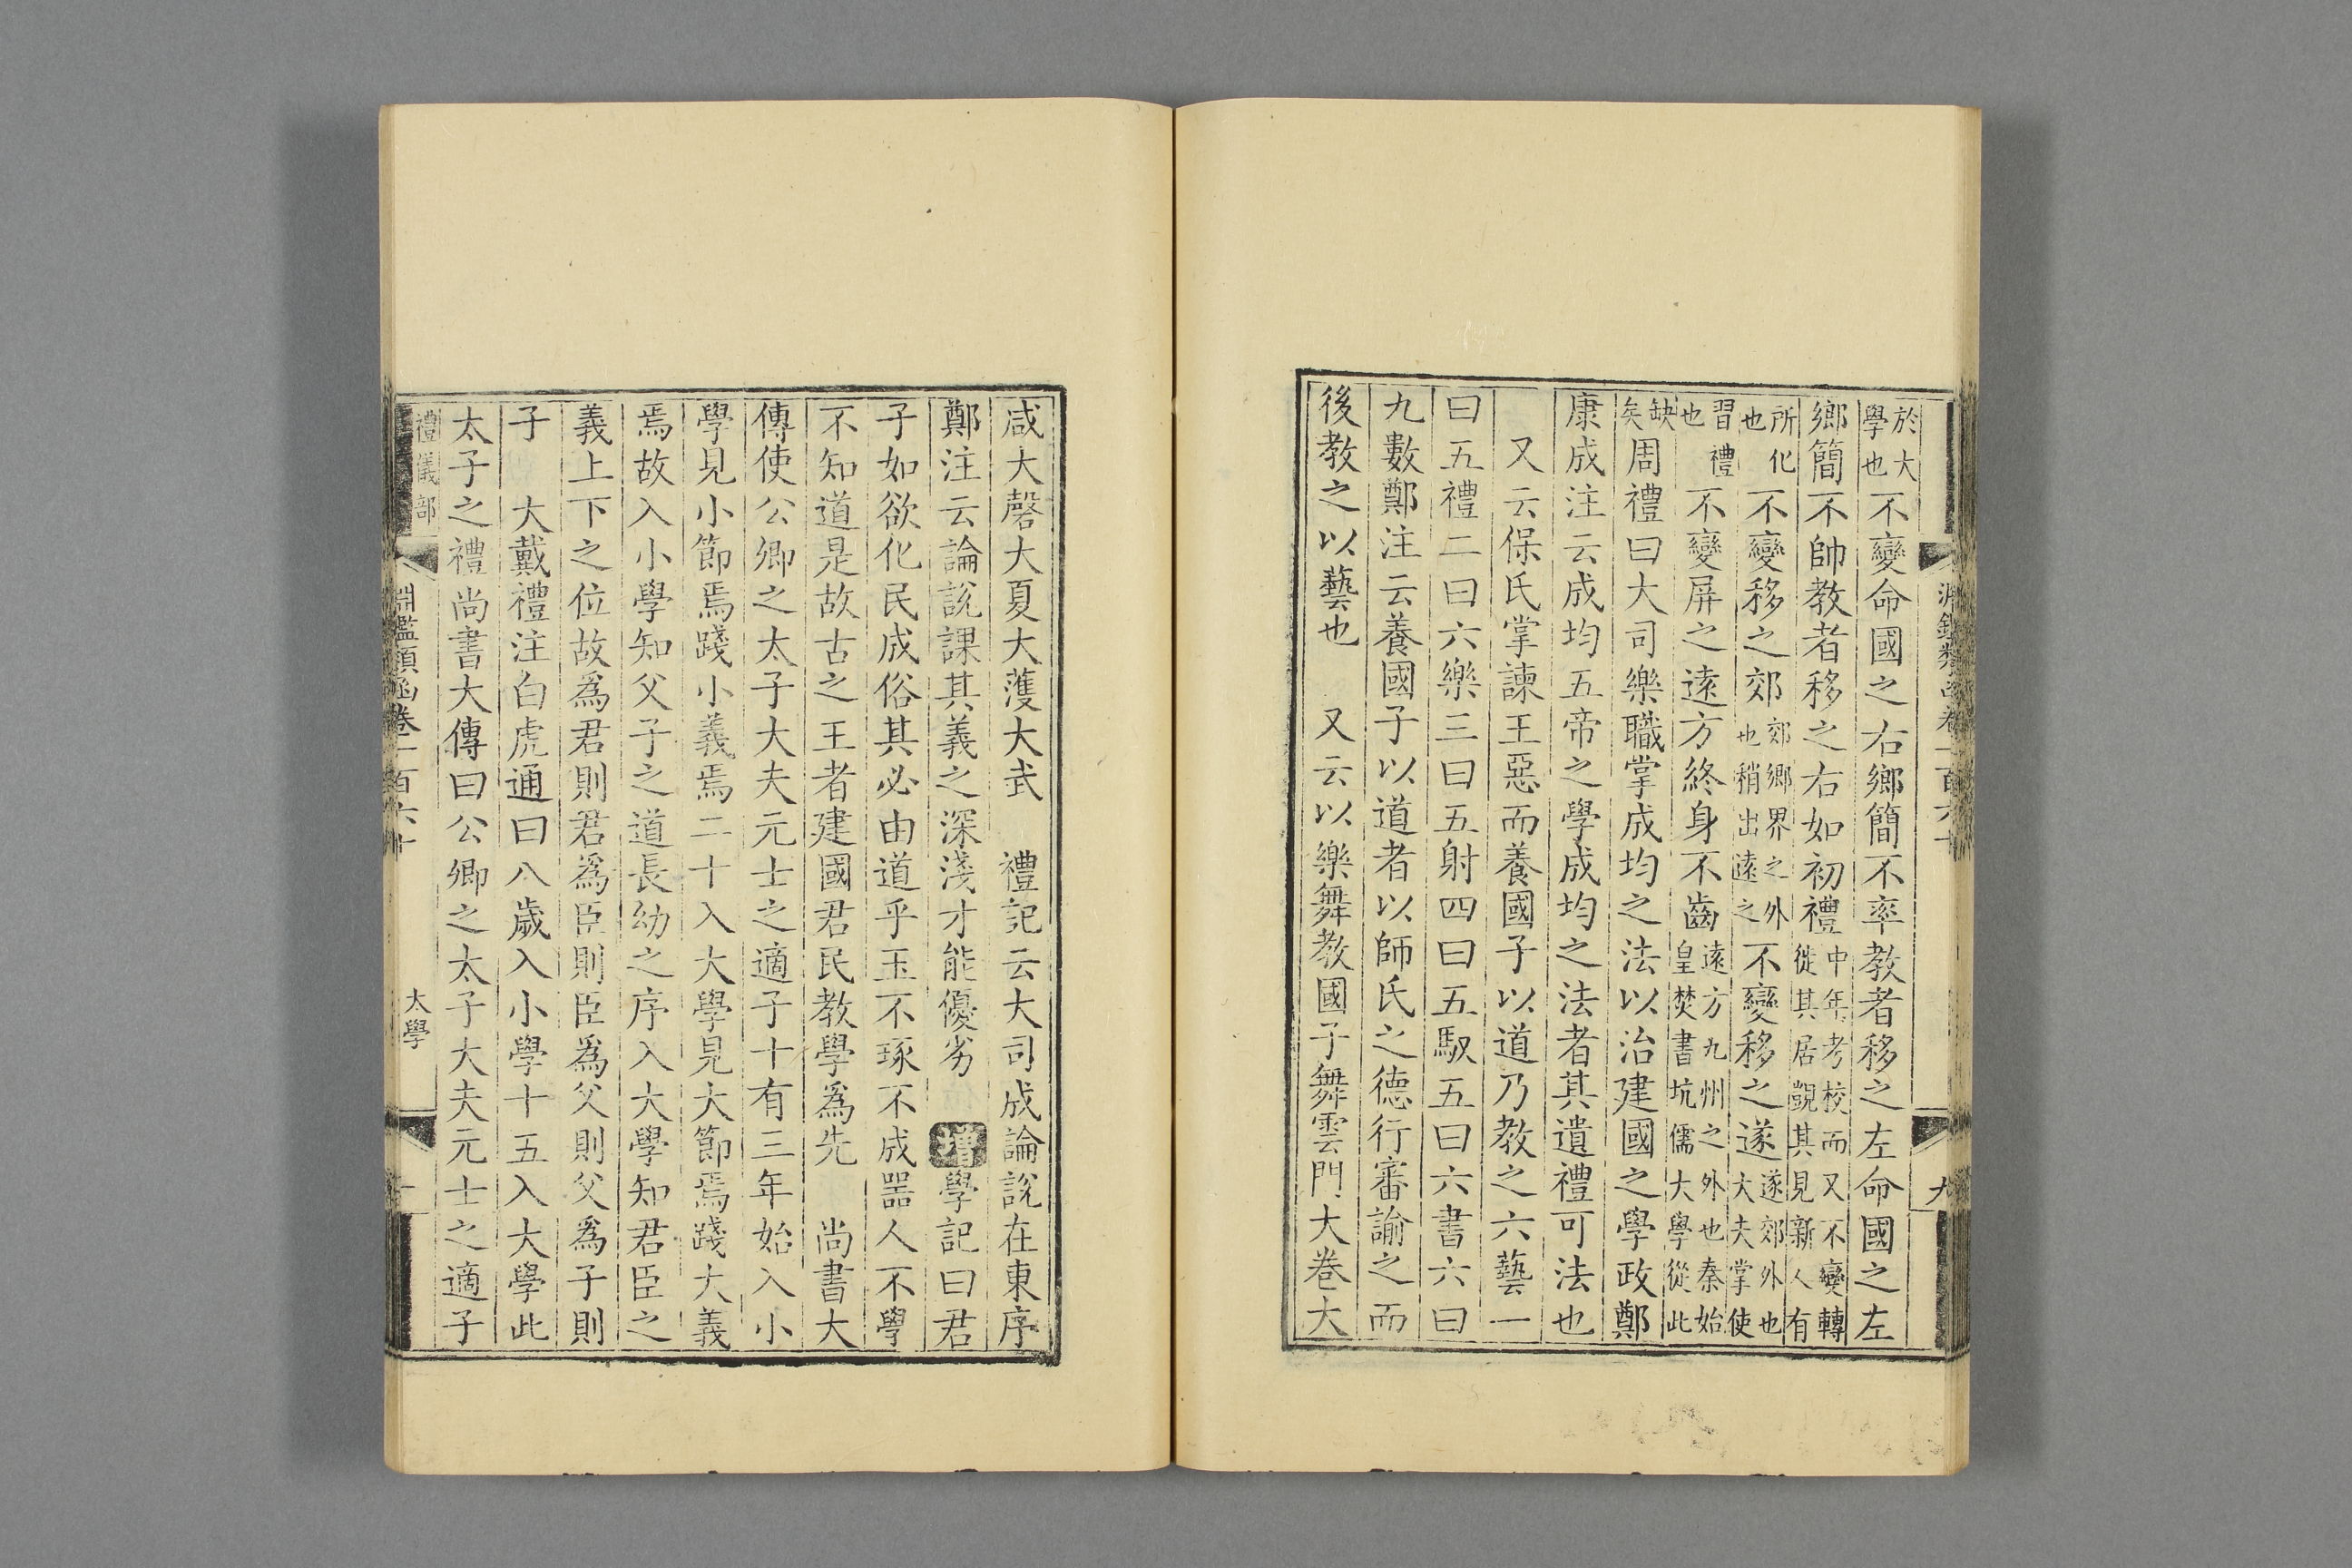 淵鑑類函卷一百六十
九
於大學也不變命國之右鄉簡不率教者移之左命國之左
鄉簡不帥教者移之右如初禮中年考校而又不變轉徙其居覬其見新人有
所化也不變移之郊郊鄉界之外也稍出遠之不變移之遂遂郊外也大夫掌使
習禮也不變屏之遠方終身不齒遠方九州之外也秦始皇焚書坑儒大學從此
缺矣周禮曰大司樂職掌成均之法以治建國之學政鄭
康成注云成均五帝之學成均之法者其遺禮可法也
又云保氏掌諫王惡而養國子以道乃教之六藝一
曰五禮二曰六樂三曰五射四曰五馭五曰六書六曰
九數鄭注云養國子以道者以師氏之德行審諭之而
後教之以藝也　又云以樂舞教國子舞雲門大卷大
咸大磬大夏大濩大武　禮記云大司成論說在東序
鄭注云論說課其義之深淺才能優劣　增學記曰君
子如欲化民成俗其必由道乎玉不琢不成噐人不學
不知道是故古之王者建國君民教學爲先　尚書大
傳使公卿之太子大夫元士之適子十有三年始入小
學見小節焉踐小義焉二十入大學見大節焉踐大義
焉故入小學知父子之道長幼之序入大學知君臣之
義上下之位故爲君則君爲臣則臣爲父則父爲子則
子　大戴禮注白虎通曰八歲入小學十五入大學此
太子之禮尚書大傳曰公卿之太子大夫元士之適子
禮儀部
淵鑑類函卷一百六十
太學